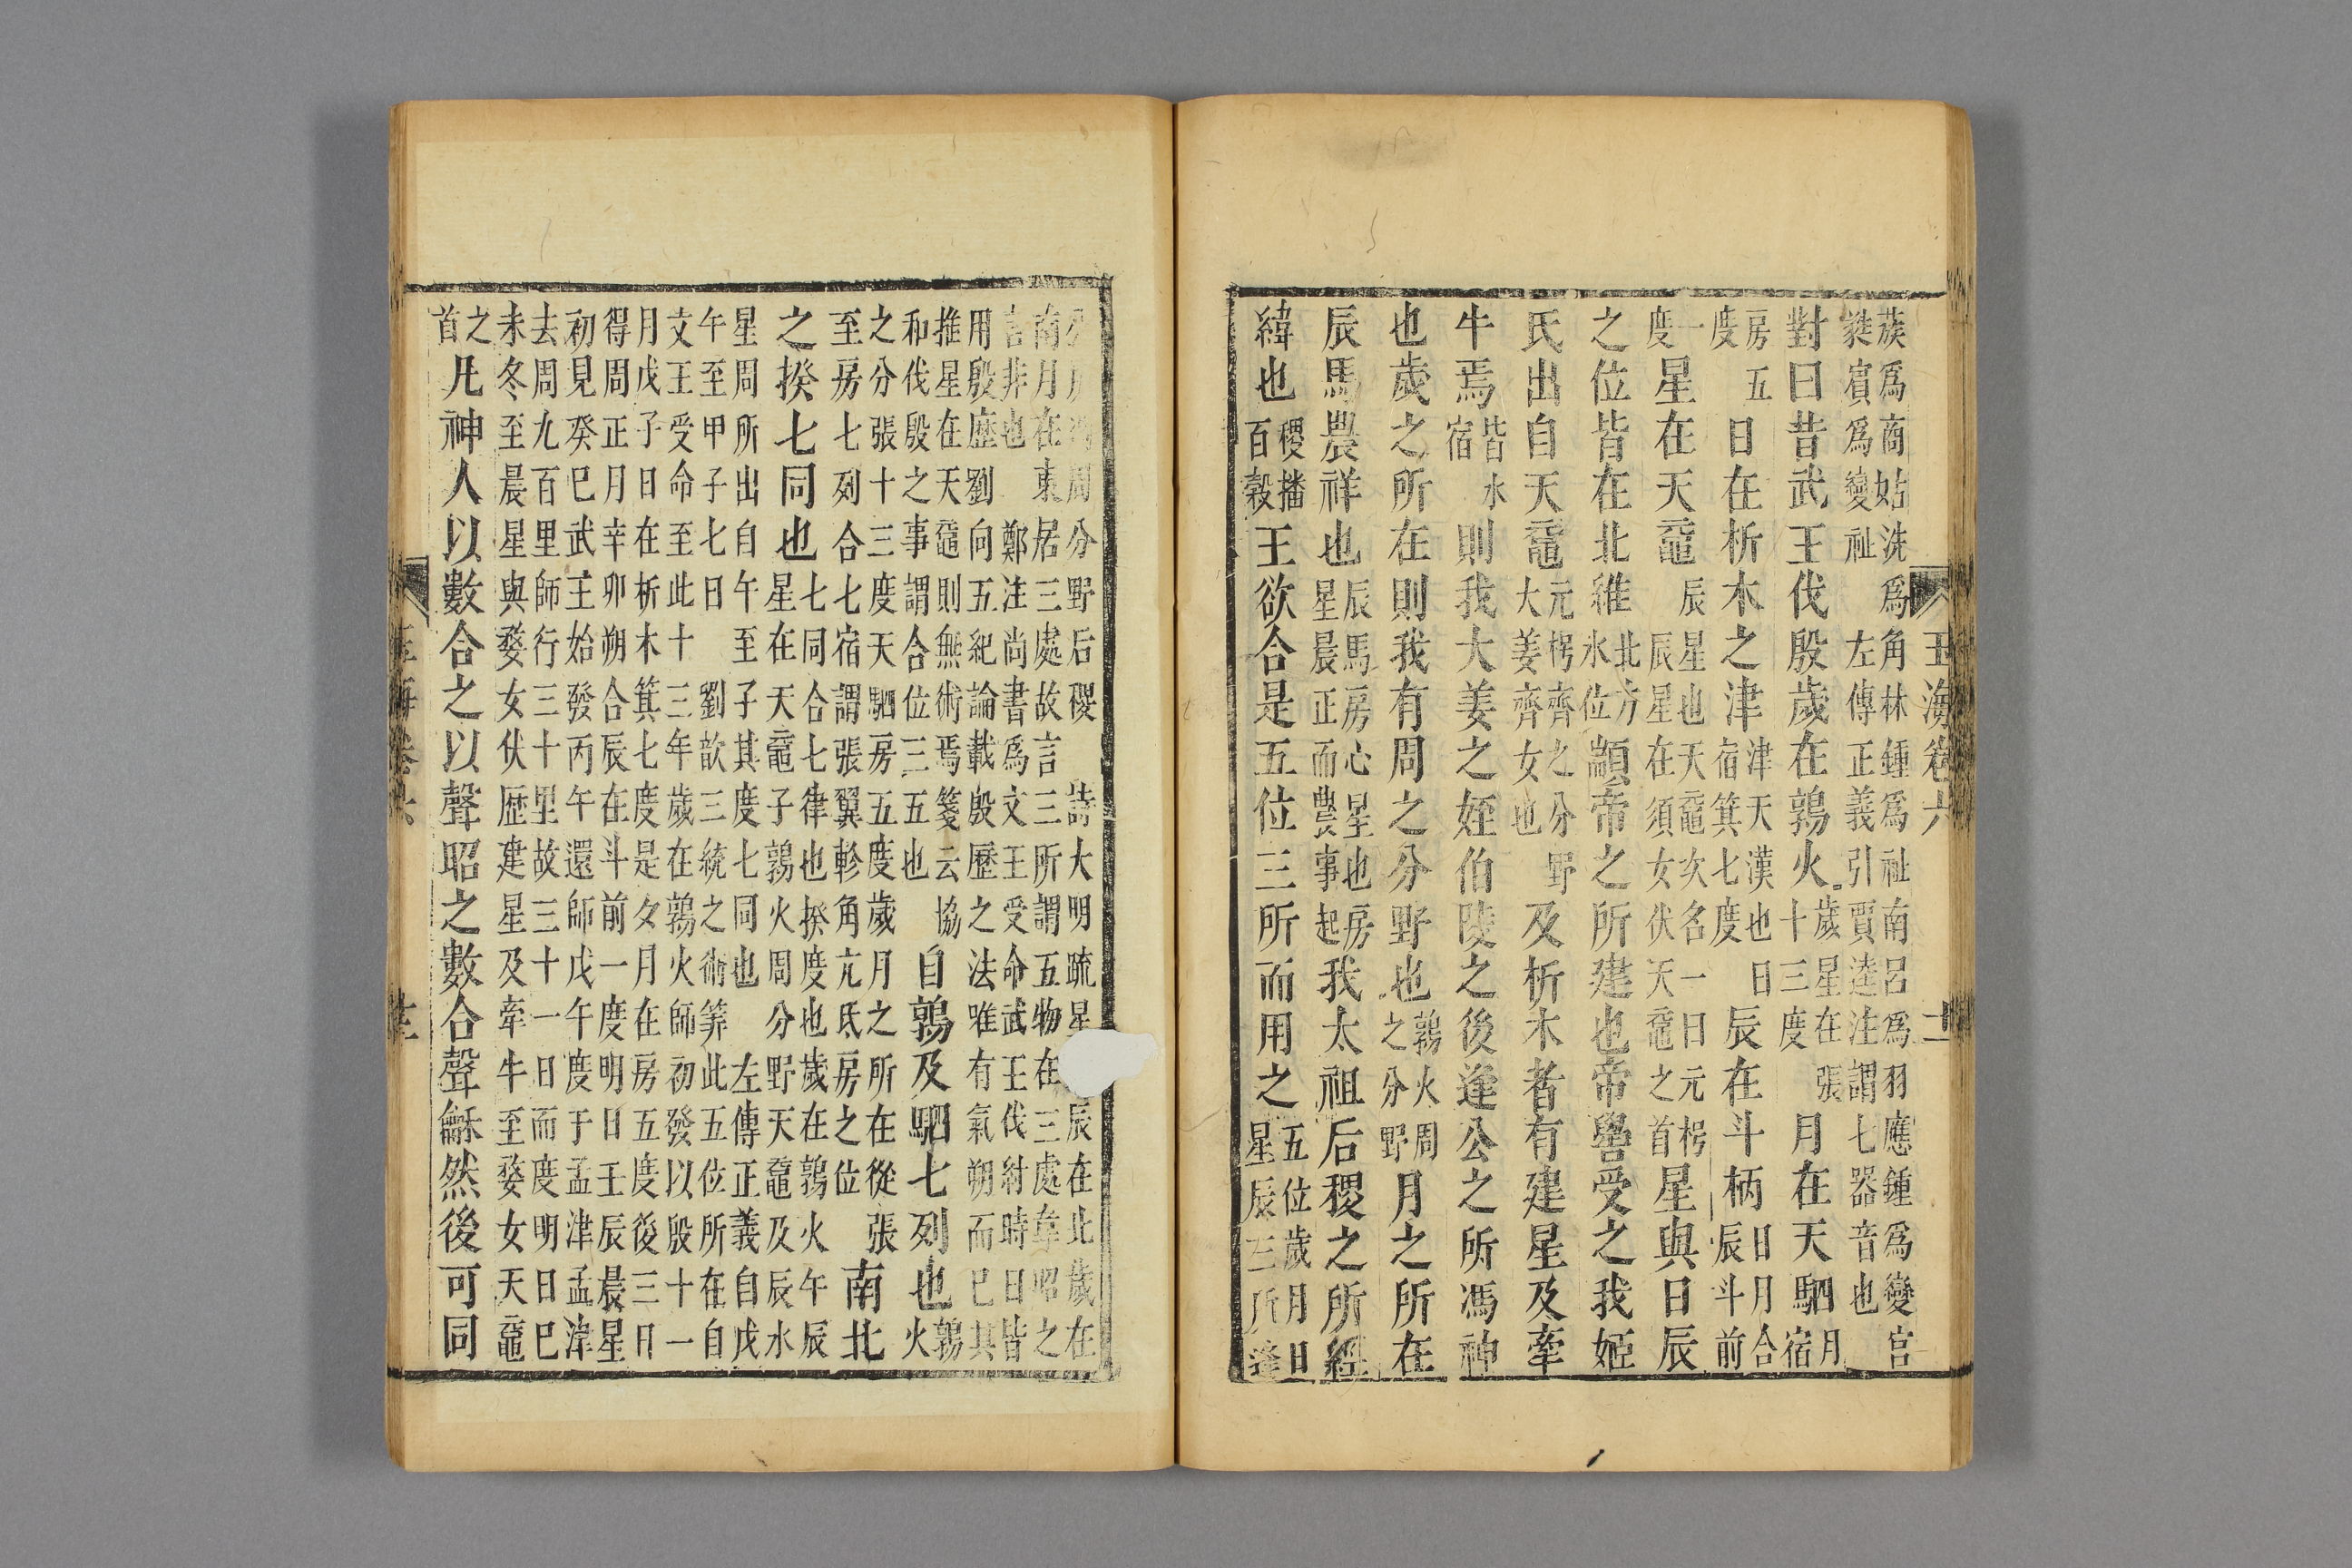 玉海卷六
族爲商姑洗爲角林鍾爲祉南呂爲羽應鍾爲變宮
蕤賓爲變祉 左傳正義引賈逵注謂七器音也
對曰昔武王伐殷歲在鶉火歲星在張十三度月在天駟月宿
房五度日在析木之津津天漢也日宿箕七度辰在斗柄日月合辰斗前
一度星在天黿星也天黿次名一曰元枵辰星在須女伏天黿之首星與日辰
之位皆在北維北方水位顓帝之所建也帝嚳受之我姬
氏出自天黿元枵齊之分野大姜齊女也及析木者有建星及牽
牛焉皆水宿則我大姜之姪伯陵之後逢公之所馮神
也歲之所在則我有周之分野也鶉火周之分野月之所在
辰馬農祥也辰馬房心星也房星晨正而農事起我太祖后稷之所經
緯也稷播百穀王欲合是五位三所而用之五位歲月日星辰三所逢
周分野后稷 詩大明疏星辰在北歲在
南月在東居三處故言三所謂五物在三處韋昭之
言非也 鄭注尚書爲文王受命武王伐紂時日皆
用殷歷劉向五紀論載殷歷之法唯有氣朔而已其
推星在天黿則無術焉箋云協
和伐殷之事謂合位三五也自鶉及駟七列也鶉火
之分張十三度天駟房五度歲月之所在從張
至房七列合七宿謂張翼軫角亢氐房之位南北
之揆七同也七同合七律也揆度也歲在鶉火午辰
星在天黿子鶉火周分野天黿及辰水
星周所出自午至子其度七同也 左傳正義自戊
午至甲子七日 劉歆三統之術筭此五位所在自
文王受命至此十三年歲在鶉火師初發以殷十一
月戊子日在析木箕七度是夕月在房五度後三日
得周正月辛卯朔合辰在斗前一度明日壬辰晨星
初見癸巳武王始發丙午還師戊午度于孟津孟津
去周九百里師行三十里故三十一日而度明日巳
未冬至晨星與婺女伏歷建星及牽牛至婺女天黿
之首凡神人以數合之以聲昭之數合聲龢然後可同